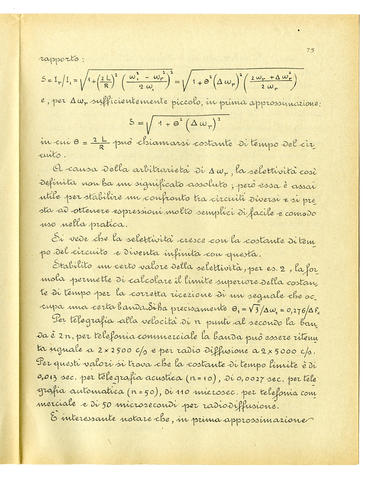 75
rapporto:
S = I_r/I_1 = √(1+(2L/R)² ((ω_1² - ω_r²)/2ω_1)²) = √(1+θ² (Δω_r)² ((2ω_r+Δω_r)/2ω_r)²)
e, per Δω_r sufficientemente piccolo, in prima approssimazione:
S = √(1+θ² (Δω_r)²)
in cui θ = 2L/R può chiamarsi costante di tempo del cir-
cuito.
A causa della arbitrarietà di Δω_r, la selettività così
definita non ha un significato assoluto; però essa è assai
utile per stabilire un confronto tra circuiti diversi e si pre-
sta ad ottenere espressioni molto semplici di facile e comodo
uso nella pratica.
Si vede che la selettività cresce con la costante di tem
po del circuito e diventa infinita con questa.
Stabilito un certo valore della selettività, per es. 2, la for
mola permette di calcolare il limite superiore della costan
te di tempo per la corretta ricezione di un segnale che oc-
cupa una certa banda. Si ha precisamente θ_1 = √3/Δω_1 = 0,276/ΔF_1
Per telegrafia alla velocità di n punti al secondo la ban
da è 2n, per telefonia commerciale la banda può essere ritenu
ta uguale a 2×2500 c/s e per radio diffusione a 2×5000 c/s.
Per questi valori si trova che la costante di tempo limite è di
0,013 sec. per telegrafia acustica (n=10), di 0,0027 sec. per tele
grafia automatica (n=50), di 110 microsec. per telefonia com
merciale e di 50 microsecondi per radiodiffusione.
È interessante notare che, in prima approssimazione